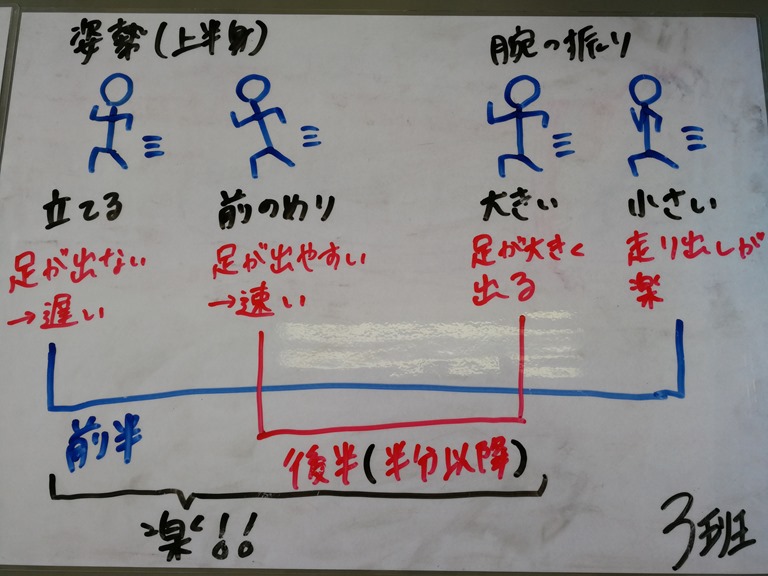 姿勢(上半身)
腕の振り
立てる
前のめり
大きい
小さい
足が出ない
→遅い
足が出やすい
→速い
足が大きく
出る
走り出しが
楽
前半
後半(半分以降)
楽!!
3班